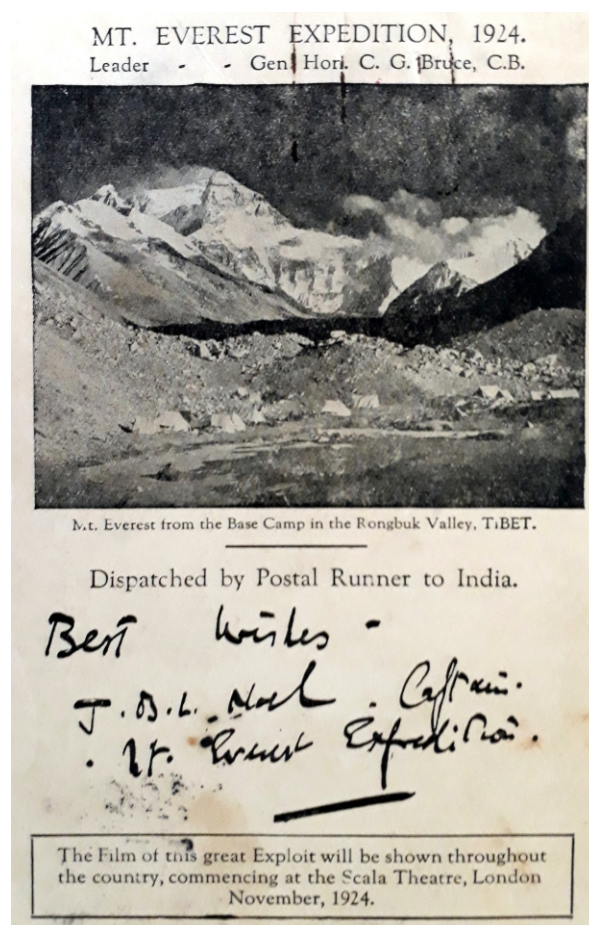 MT. EVEREST EXPEDITION, 1924.
Leader - - Gen. Hon. C. G. Bruce, C.B.
Mt. Everest from the Base Camp in the Rongbuk Valley, TIBET.
Dispatched by Postal Runner to India.
Best Wishes -
J.B.L. Noel. Captain.
. Mt. Everest Expedition.
The Film of this great Exploit will be shown throughout
the country, commencing at the Scala Theatre, London
November, 1924.